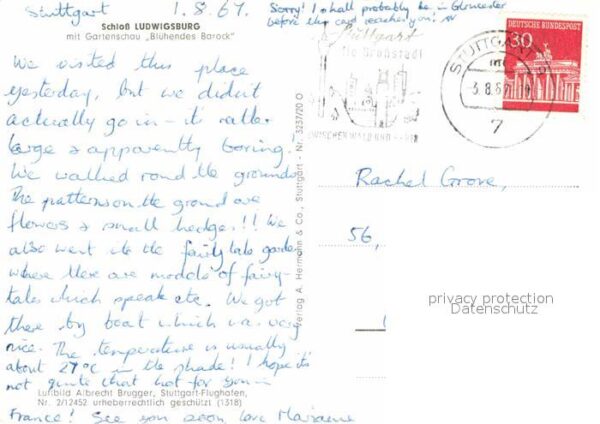 Stuttgart 1.8.67.
Sorry! I shall probably be in Gloucester
before this card reaches you!
Schloß LUDWIGSBURG
mit Gartenschau „Blühendes Barock"
We visited this place
yesterday, but we didn't
actually go in - it's rather
large & apparently boring!
We walked round the grounds.
The patterns on the ground are
flowers & small hedges!! We
also went to the fairy tale garden
where there are models of fairy-
tales which speak etc. We got
there by boat which was very
nice. The temperature is usually
about 27°C in the shade! I hope it's
not quite that hot for you in
France! See you soon, love
Luftbild Albrecht Brugger, Stuttgart-Flughafen,
Nr. 2/12452 urheberrechtlich geschützt (1318)
Verlag A. Hermann & Co., Stuttgart - Nr. 3237/20 O
Stuttgart
die Großstadt
ZWISCHEN WALD UND
STUTTGART 9
3.8.67
7
DEUTSCHE BUNDESPOST
30
Rachel Grove,
56,
privacy protection
Datenschutz